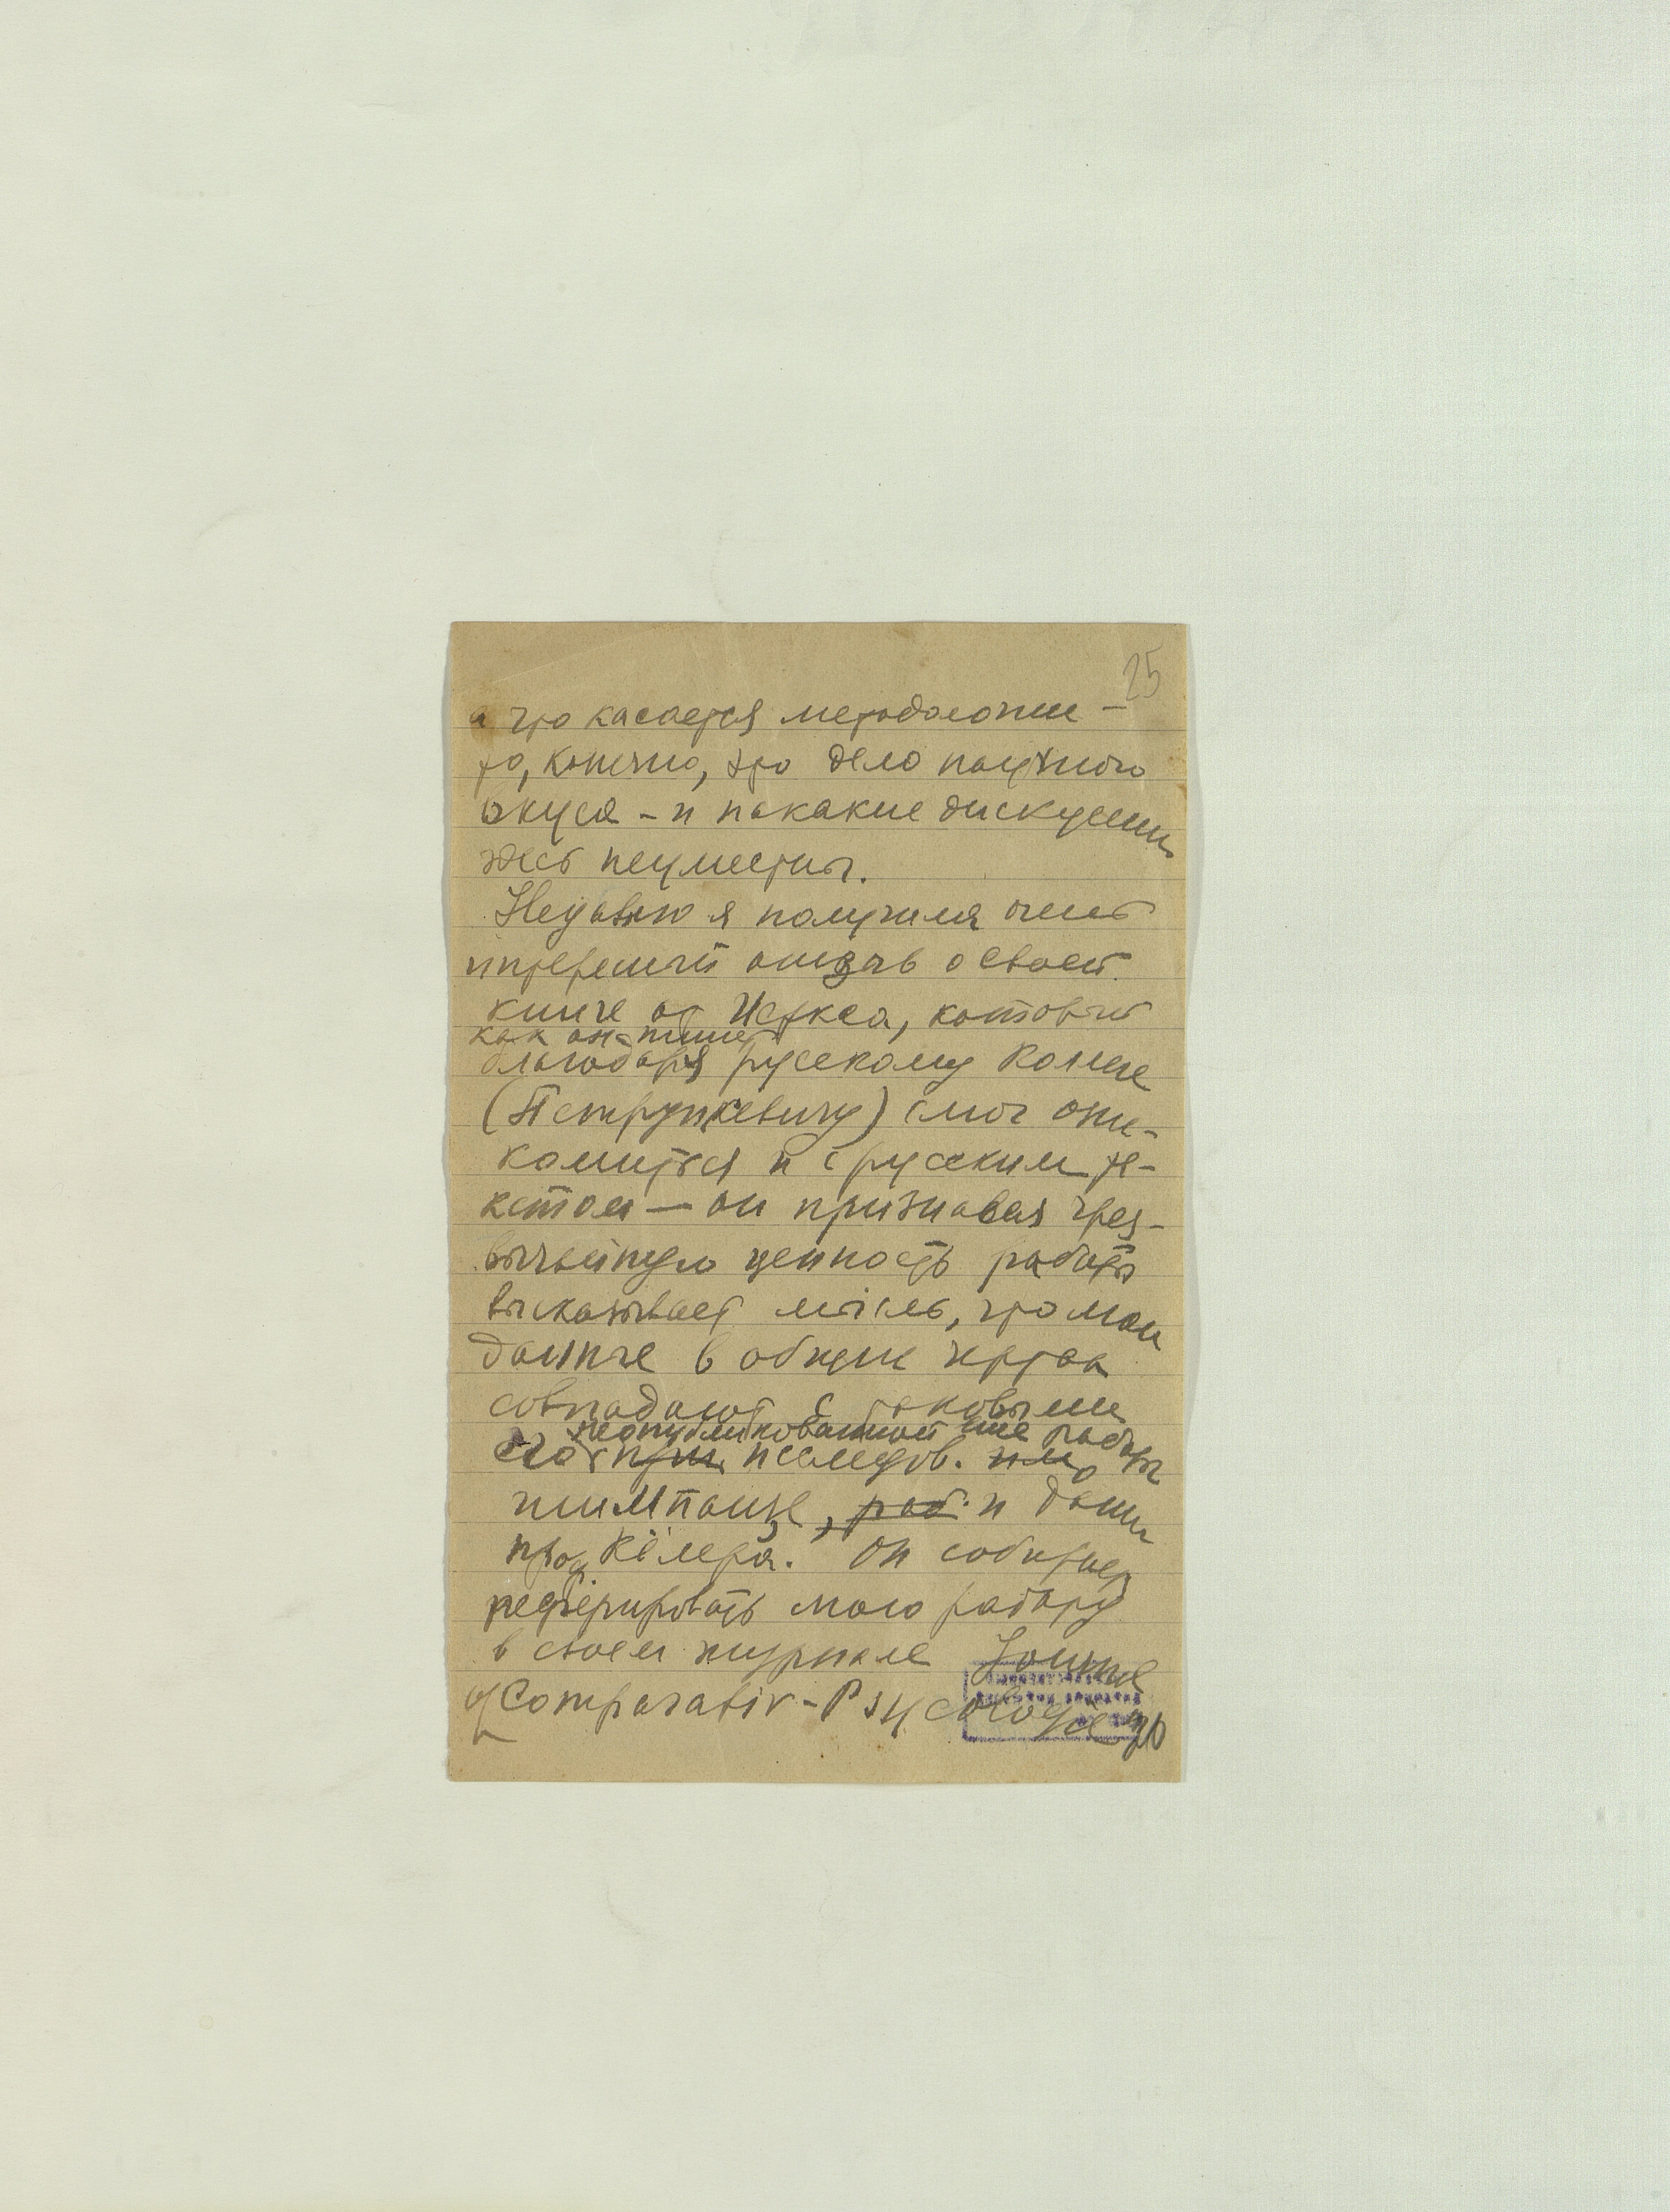 25
а что касается методологии —
то, конечно, это дело научного
вкуса – и никакие дискуссии
здесь неуместны.
Недавно я получила очень
интересный отзыв о своей
книге от Иеркса, который
как он пишет
благодаря русскому коллеге
(Петрункевичу) смог озна-
комиться и с русским те-
кстом — он признавая чрез-
вычайную ценность работы
высказывает мысль, что мои
данные в общих чертах
совпадают с таковыми
неопубликованной еще работы
его исследов.
шимпанзе, и данн
проф Кёлера. Он собирает
реферировать мою работу
в своем журнале Journal
of Comparativ-Psycologie